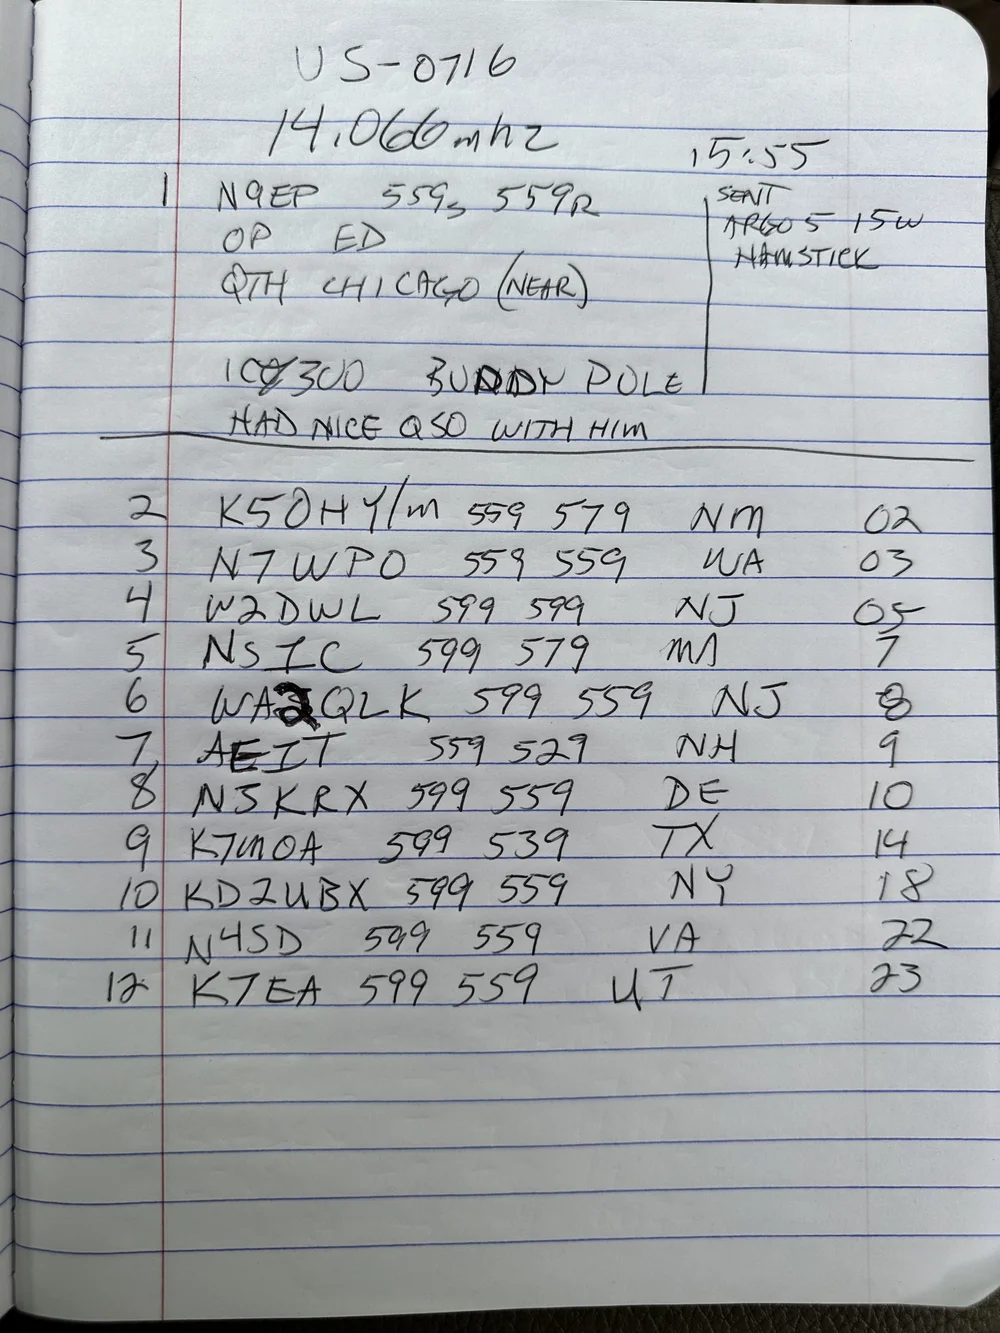 US-0716
14.066mhz
15:55
1 N9EP 559s 559R
OP ED
QTH CHICAGO (NEAR)
SENT
ARGO 5 15W
HAMSTICK
300 BUDDY POLE
HAD NICE QSO WITH HIM
2 K5OHY/m 559 579 NM 02
3 N7WPO 559 559 WA 03
4 W2DWL 599 599 NJ 05
5 NS1C 599 579 MA 7
6 WA2QLK 599 559 NJ 8
7 AE1T 559 529 NH 9
8 N3KRX 599 559 DE 10
9 K7MOA 599 539 TX 14
10 KD2UBX 599 559 NY 18
11 N4SD 599 559 VA 22
12 K7EA 599 559 UT 23